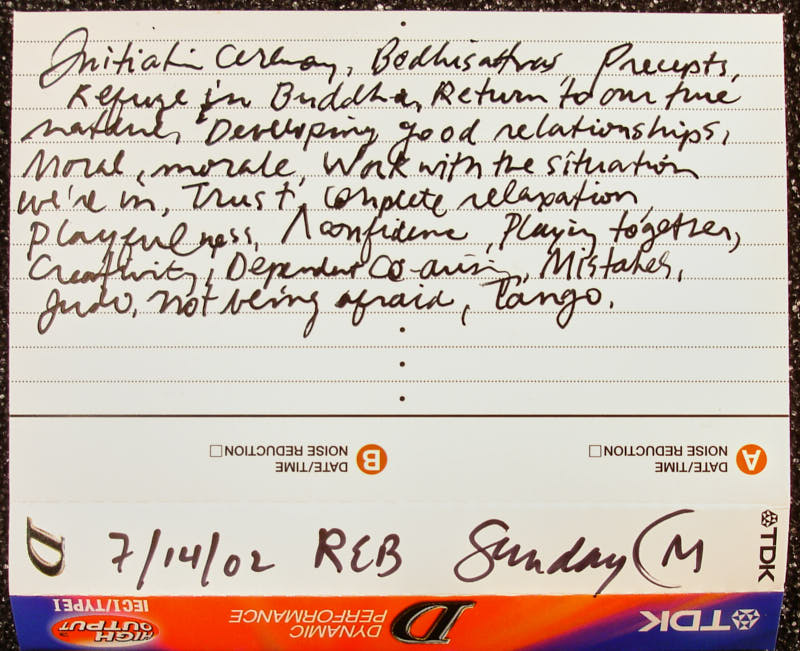 Initiatin Ceremony, Bodhisattvas, Precepts,
Refuge in Buddha, Return to our true
nature, Developing good relationships,
Moral, morale, Work with the situation
we're in, Trust, Complete relaxation,
Playfulness, confidence, Playing together,
Creativity, Dependent Co-arising, Mistakes,
Judo, not being afraid, Tango.
A DATE/TIME
NOISE REDUCTION
B DATE/TIME
NOISE REDUCTION
D 7/14/02 REB Sunday (M TDK
TDK D DYNAMIC PERFORMANCE HIGH OUTPUT IECI/TYPE I